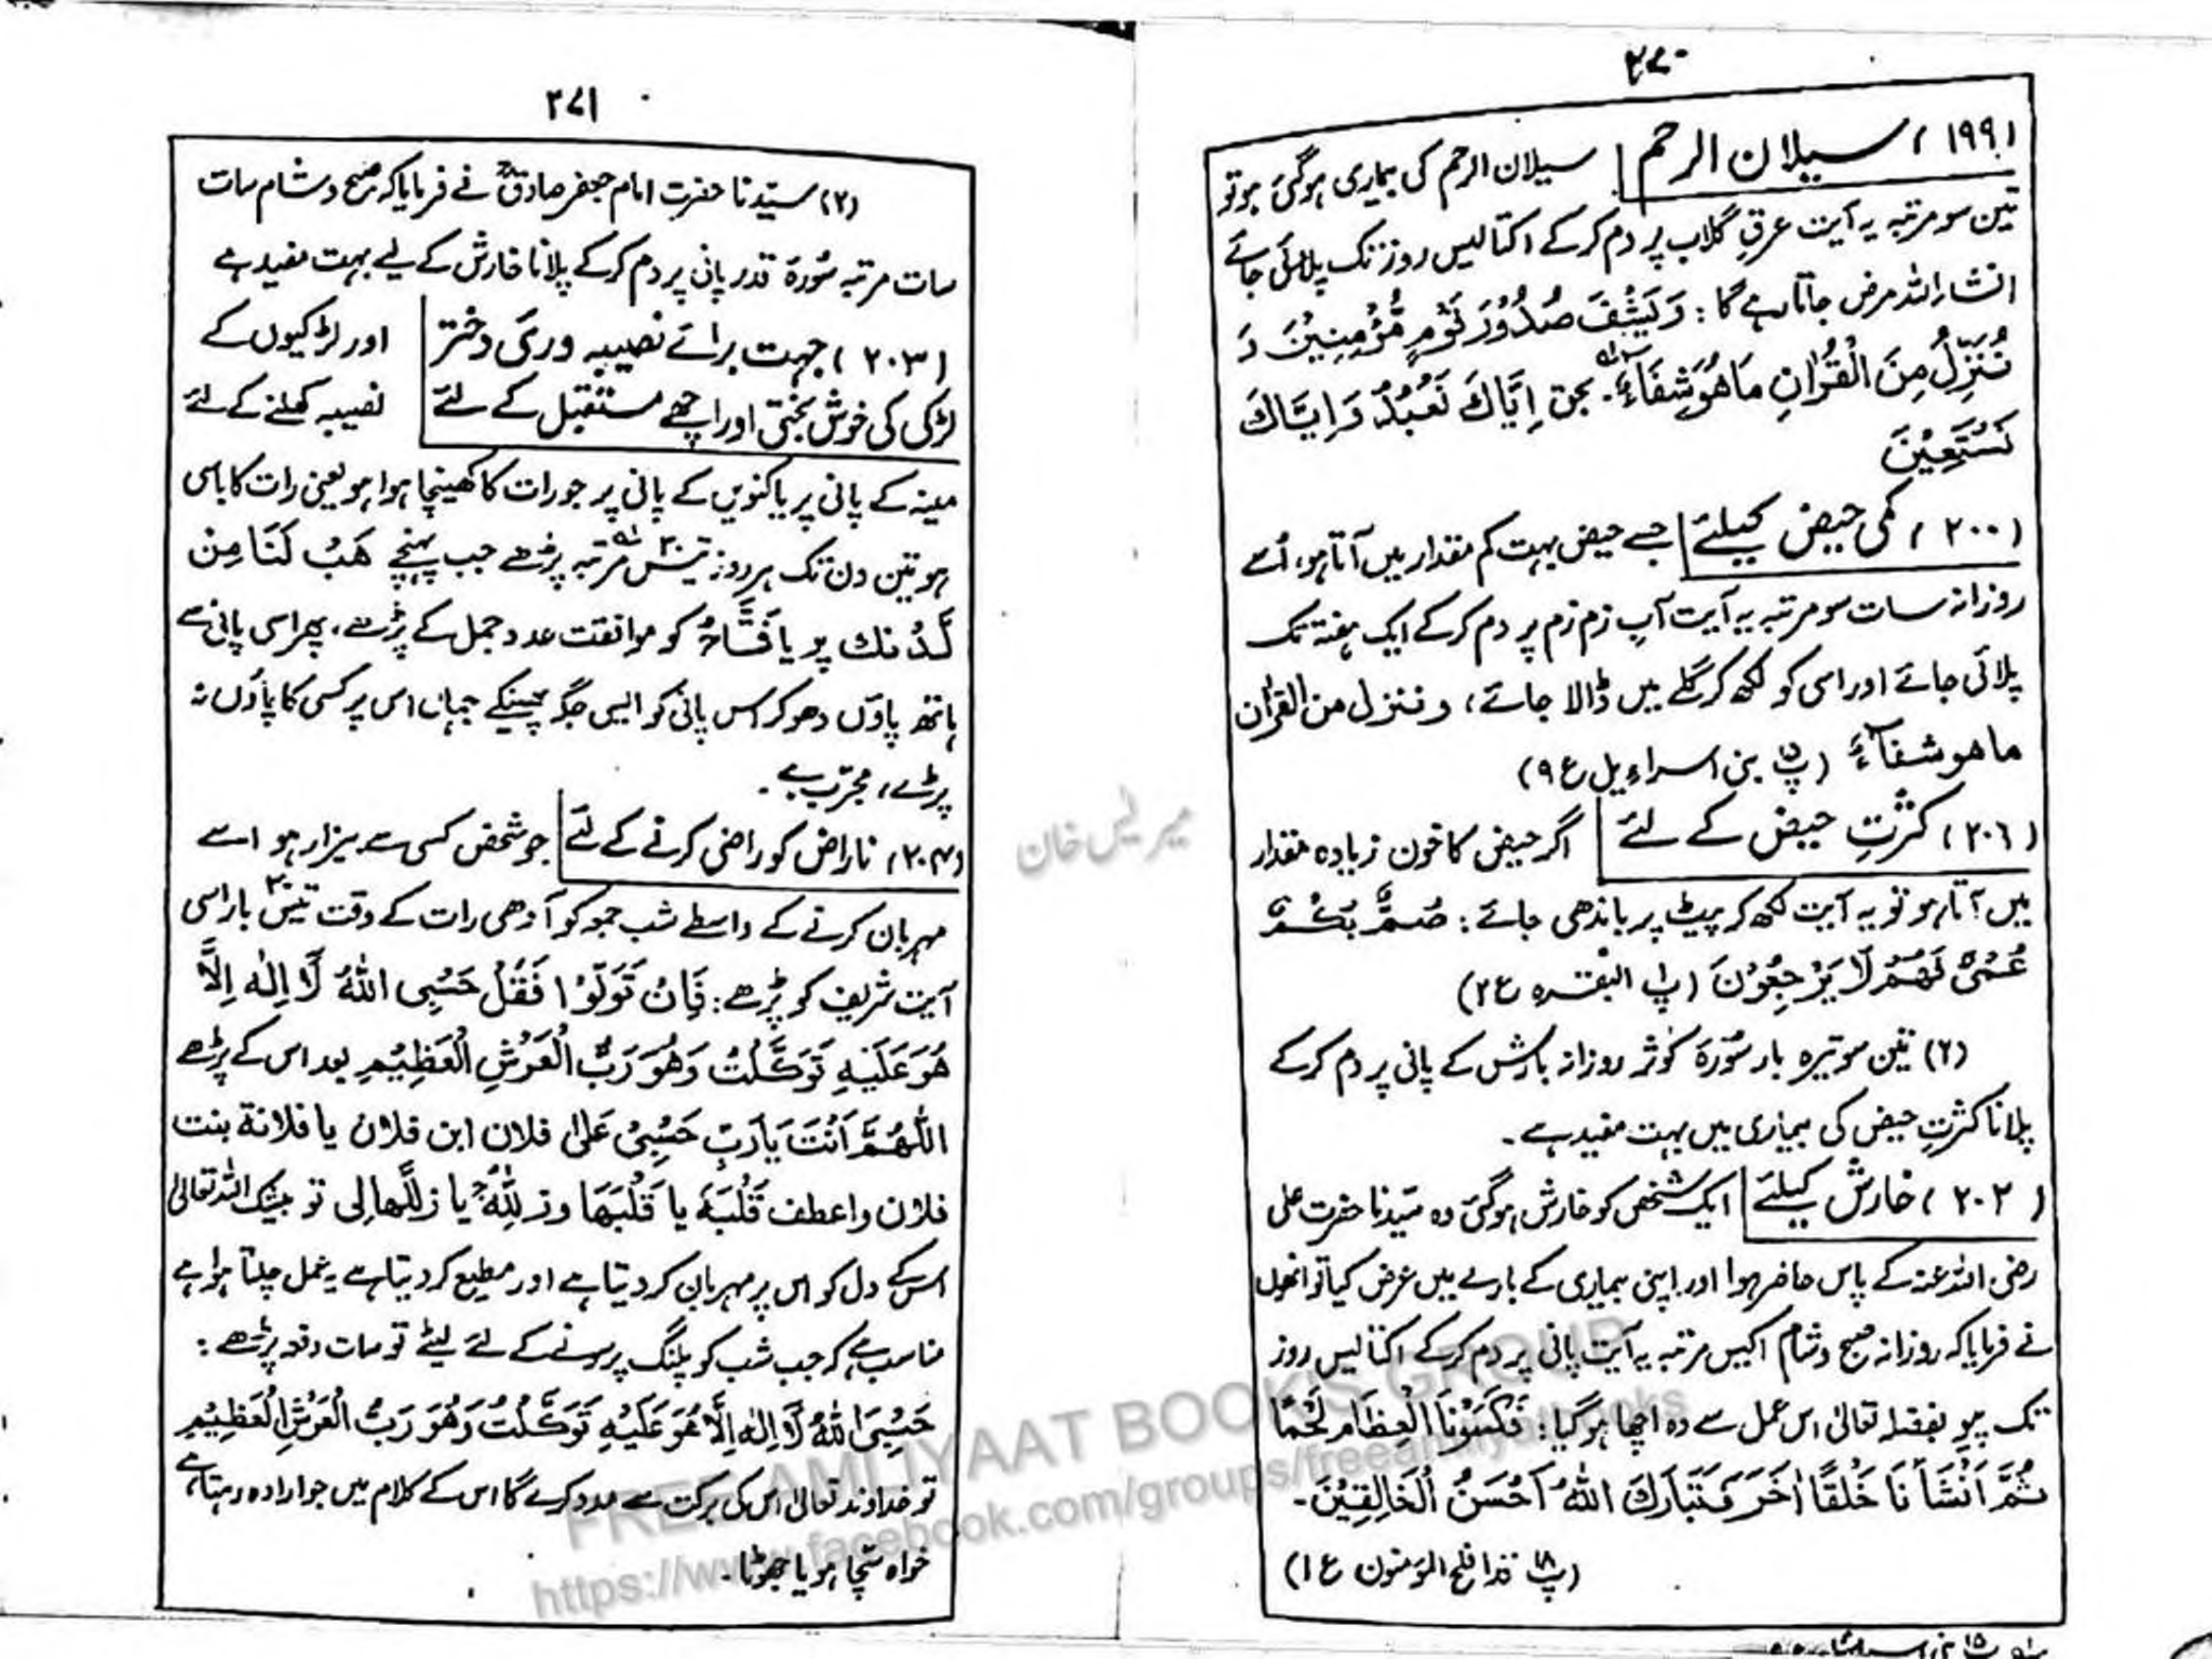 ۲۷۰
(۱۹۹) سیلان الرحم سیلان الرحم کی بیماری ہوگئی ہو تو
تین سو مرتبہ یہ آیت عرقِ گلاب پر دم کرکے اکتالیس روز تک پلائی جائے
انشاء اللہ مرض جاتا رہے گا : وَیَشْفِ صُدُوْرَ قَوْمٍ مُّؤْمِنِیْنَ وَ
نُنَزِّلُ مِنَ الْقُرْاٰنِ مَا هُوَ شِفَآءٌ ۔ بحق اِیَّاكَ نَعْبُدُ وَاِیَّاكَ
نَسْتَعِیْنَ
(۲۰۰) کمی حیض کیلئے جسے حیض بہت کم مقدار میں آتا ہو، اُسے
روزانہ سات سو مرتبہ یہ آیت آبِ زم زم پر دم کرکے ایک ہفتہ تک
پلائی جائے اور اسی کو لکھ کر گلے میں ڈالا جائے، وننزل من القراٰن
ماهو شفآءٌ (پ۱۵ بنی اسراءیل ع ۹)
(۲۰۱) کثرتِ حیض کے لئے اگر حیض کا خون زیادہ مقدار
میں آتا ہو تو یہ آیت لکھ کر پیٹ پر باندھی جائے : صُمٌّ بُكْمٌ
عُمْیٌ فَهُمْ لَا یَرْجِعُوْنَ (پ۱ البقرہ ع ۲)
(۲) تین سو تیرہ بار سُوْرَۃ کَوثر روزانہ بارش کے پانی پر دم کرکے
پلانا کثرتِ حیض کی بیماری میں بہت مفید ہے ۔
(۲۰۲) خارش کیلئے ایک شخص کو خارش ہوگئی وہ سیّدنا حضرت علی
رضی اللہ عنہ کے پاس حاضر ہوا اور اپنی بیماری کے بارے میں عرض کیا تو انھوں
نے فرمایا کہ روزانہ صبح و شام اکیس مرتبہ یہ آیت پانی پر دم کرکے اکتالیس روز
تک پیو بفضلہ تعالیٰ اس عمل سے وہ اچھا ہوگیا : فَكَسَوْنَا الْعِظَامَ لَحْمًا
ثُمَّ اَنْشَأْنَا خَلْقًا اٰخَرَ فَتَبَارَكَ اللّٰهُ اَحْسَنُ الْخَالِقِیْنَ ۔
(پ۱۸ قد افلح المؤمنون ع ۱)
۲۷۱
(۲) سیّدنا حضرت امام جعفر صادقؓ نے فرمایا کہ صبح و شام سات
سات مرتبہ سُورۃ قدر پانی پر دم کرکے پلانا خارش کے لیے بہت مفید ہے
(۲۰۳) جہت برائے نصیبہ وری دختر اور لڑکیوں کے
لڑکی کی خوش بختی اور اچھے مستقبل کے لئے نصیبہ کھلنے کے لئے
مینہ کے پانی پر یا کنویں کے پانی پر جو رات کا کھینچا ہوا ہو یعنی رات کا باسی
ہو تین دن تک ہر روز تیس ۳۰ مرتبہ پڑھے جب پہنچے هَبْ لَنَا مِنْ
لَّدُنك پر یا فَتَّاحُ کو موافقت عدد جمل کے پڑھے، پھر اسی پانی سے
ہاتھ پاؤں دھو کر اس پانی کو ایسی جگہ پھینکے جہاں اس پر کسی کا پاؤں نہ
پڑے، مجرّب ہے ۔
(۲۰۴) ناراض کو راضی کرنے کے لئے جو شخص کسی سے بیزار ہو اسے
مہربان کرنے کے واسطے شب جمعہ کو آدھی رات کے وقت تیس ۳۰ بار اسی
آیت شریف کو پڑھے : فَاِنْ تَوَلَّوْا فَقُلْ حَسْبِی اللّٰهُ لَآ اِلٰهَ اِلَّا
هُوَ عَلَیْهِ تَوَكَّلْتُ وَهُوَ رَبُّ الْعَرْشِ الْعَظِیْمِ بعد اس کے پڑھے
اَللّٰهُمَّ اَنْتَ یَا رَبِّ حَسْبِیْ عَلیٰ فلان ابن فلان یا فلانة بنت
فلان واعطف قَلْبَهٗ یا قَلْبَهَا وذلِّلْهُ یا ذللّٰها لی تو بیشک اللہ تعالیٰ
اس کے دل کو اس پر مہربان کر دیتا ہے اور مطیع کر دیتا ہے یہ عمل چلتا ہوا ہے
مناسب ہے کہ جب شب کو پلنگ پر سونے کے لئے لیٹے تو سات دفعہ پڑھے :
حَسْبِیَ اللّٰهُ لَآ اِلٰهَ اِلَّا هُوَ عَلَیْهِ تَوَكَّلْتُ وَهُوَ رَبُّ الْعَرْشِ الْعَظِیْمِ
تو خداوند تعالیٰ اس کی برکت سے مدد کرے گا اس کے کلام میں جو ارادہ رہتا ہے
خواہ سچّا ہو یا جھوٹا ۔
FREE AMLIYAAT BOOK'S GROUP
https://www.facebook.com/groups/freeamliyatbooks